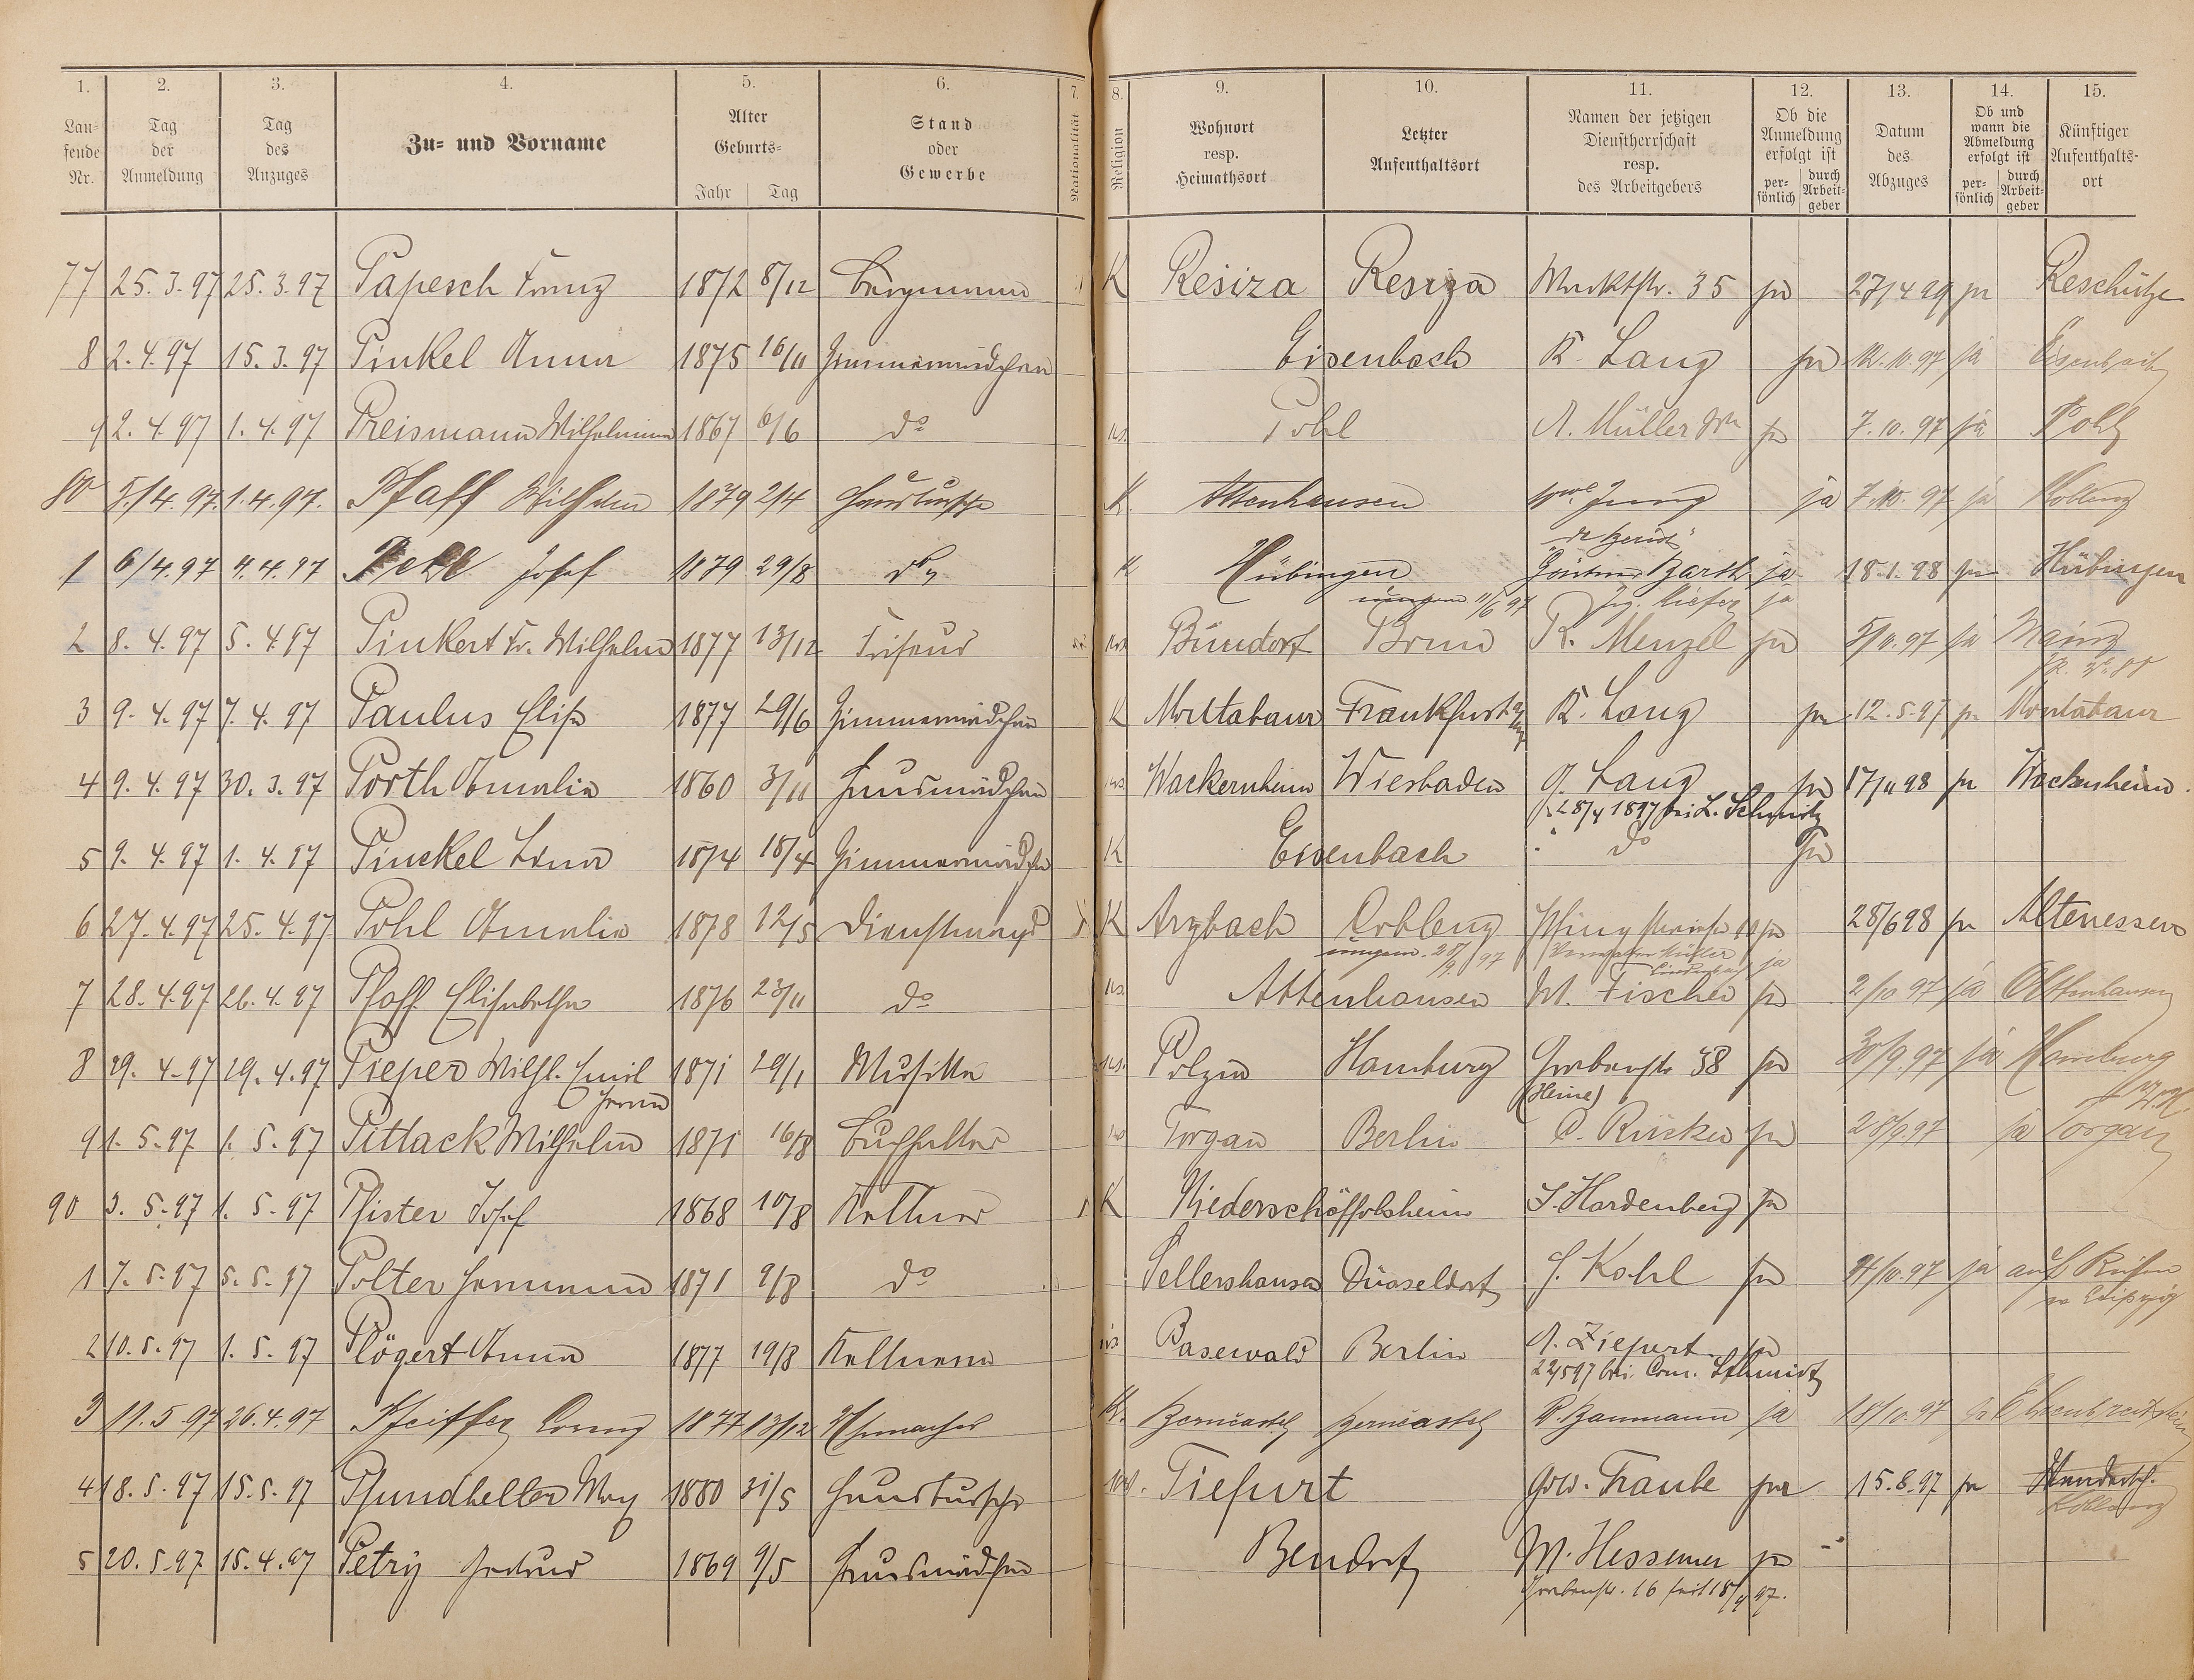 1. 2. 3. 4. 5. 6. 7. 8. 9. 10. 11. 12. 13. 14. 15.
Lau-fende Nr. Tag der Anmeldung Tag des Anzuges Zu- und Vorname Alter Geburts- Jahr Tag Stand oder Gewerbe Nationalität Religion Wohnort resp. Heimathsort Letzter Aufenthaltsort Namen der jetzigen Dienstherrschaft resp. des Arbeitgebers Ob die Anmeldung erfolgt ist per-sönlich durch Arbeit-geber Datum des Abzuges Ob und wann die Abmeldung erfolgt ist per-sönlich durch Arbeit-geber Künftiger Aufenthalts-ort
77 25.3.97 25.3.97 Papesch Franz 1872 8/12 Bergmann K Resiza Resiza Marktstr. 35 ja 27/4 99 ja Reschitza
8 2.4.97 15.3.97 Pinkel Anna 1875 16/11 Zimmermädchen Eisenbach K. Lang ja 12.10.97 ja Eisenbach
9 2.4.97 1.4.97 Preismann Wilhelmine 1867 6/6 do Pohl A. Müller Ww ja 7.10.97 ja Pohl
80 5/4.97. 1.4.97. Pfaff Wilhelm 1879 2/4 Hausbursche K. Attenhausen Jung ja 7.10.97 ja Koblenz
1 6/4.97 4.4.97 Josef 1879 29/8 do K Hübingen Gärtner Barth ja 18.1.98 ja Hübingen
umgem. 11/6 97 Kiefer ja
2 8.4.97 5.4.97 Pinkert Fr. Wilhelm 1877 13/12 Friseur Bündorf Bonn R. Menzel ja 5/10.97 ja Mainz
3 9.4.97 7.4.97 Paulus Elise 1877 29/6 Zimmermädchen K Montabaur Frankfurt K. Lang ja 12.5.97 ja Montabaur
4 9.4.97 30.3.97 Porth Amalie 1860 3/11 Hausmädchen Wackernheim Wiesbaden G. Lang ja 17/11 98 ja Wackernheim.
28/4 1897 bei L. Schmitz
5 9.4.97 1.4.97 Pinckel Lina 1874 18/4 Zimmermädchen K Eisenbach do ja
6 27.4.97 25.4.97 Pohl Amalie 1878 12/5 Dienstmagd K Arzbach Coblenz ja 28/6 98 ja Altenessen
umgem. 28/9. 97 Müller ja
7 28.4.97 26.4.97 Pfaff Elisabetha 1876 23/11 do Attenhausen W. Fischer ja 2/10 97 ja Attenhausen
8 29.4.97 29.4.97 Pieper Wilh. Emil 1871 29/1 Musiker Polzin Hamburg Grabenstr 38 ja 30/9.97 ja Hamburg
(Heine)
9 1.5.97 1.5.97 Pittack Wilhelm 1871 16/8 Buchhalter Torgau Berlin C. Rücker ja 28/9 97 ja Torgau
90 3.5.97 1.5.97 Pfister Josef 1868 10/8 Kellner K Niederschäffolsheim J. Hardenberg ja
1 7.5.97 5.5.97 Polter Hermann 1871 9/8 do Sellershausen Düsseldorf J. Kohl ja 4/10.97 ja auf Reisen
Leipzig
2 10.5.97 1.5.97 Plögert Anna 1877 19/8 Kellnerin Pasewald Berlin A. Ziefurt ja
22/5 97 bei Schmidt
3 11.5.97 26.4.97 Pfeiffer 1877 13/12 Uhrmacher K. Berncastel Berncastel P. Baumann ja 18/10.97 ja Ehrenbreitstein
4 18.5.97 15.5.97 Pfundheller Max 1880 31/5 Hausbursche Tiefurt Gew. Traube ja 15.8.97 ja
Koblenz
5 20.5.97 15.4.97 Petry 1869 9/5 Hausmädchen Bendorf M. Hessemer ja
Grabenstr. 16 seit 18/4 97.